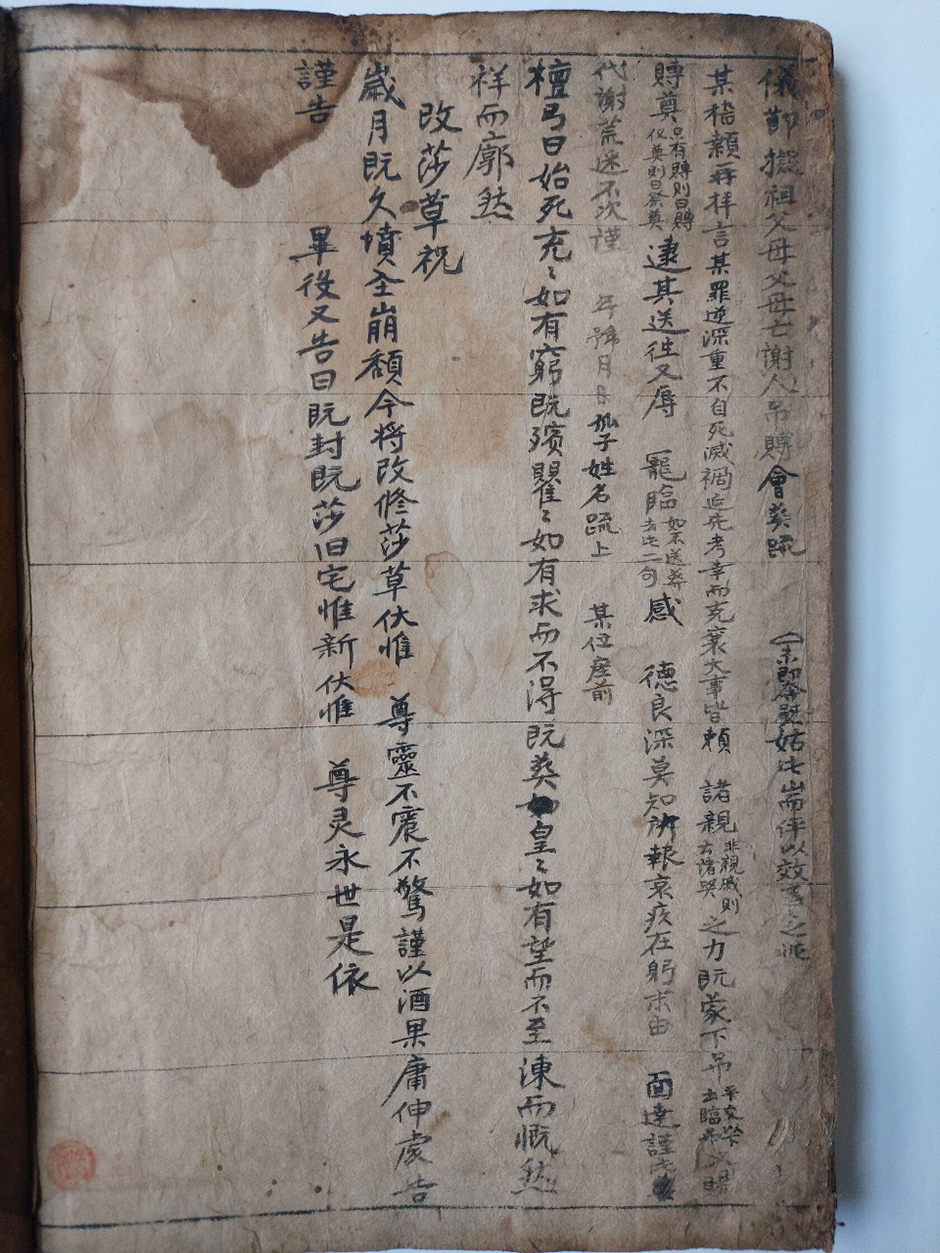 儀節擬祖父母父母亡謝人吊賻會葬疏
某稽顙再拜言某罪逆深重不自死滅禍延先考幸而克襄大事皆賴 諸親 非親戚則去諸哭 之力既蒙下吊
賻奠 只有賻則曰賻 仅奠則曰祭奠 逮其送徃又辱 寵臨 如不送葬去此二句 感 德良深莫知所報哀疚在躬末由 面達謹
代謝荒迷不次謹 年號月日孤子姓名疏上 某位座前
檀弓曰始死充〻如有窮既殯瞿〻如有求而不得既葬皇〻如有望而不至湅而慨然
祥而廓然
改莎草祝
歲月既久墳全崩頹今将改修莎草伏惟 尊靈不震不驚謹以酒果庸伸虔告
謹告 畢役又告曰既封既莎旧宅惟新伏惟 尊灵永世是依